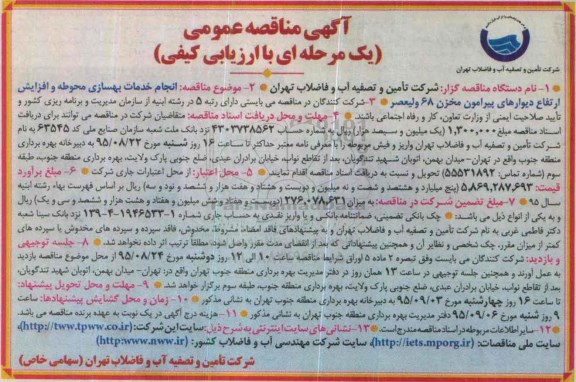 آگهی مناقصه عمومی
(یک مرحله ای با ارزیابی کیفی)
شرکت تأمین و تصفیه آب و فاضلاب تهران
۱- نام دستگاه مناقصه گزار: شرکت تأمین و تصفیه آب و فاضلاب تهران ۲- موضوع مناقصه: انجام خدمات بهسازی محوطه و افزایش
ارتفاع دیوارهای پیرامون مخزن ۶۸ ولیعصر ۳- شرکت کنندگان در مناقصه می بایستی دارای رتبه ۵ در رشته ابنیه از سازمان مدیریت و برنامه ریزی کشور و
تأیید صلاحیت ایمنی از وزارت تعاون، کار و رفاه اجتماعی باشند ۴- مهلت و محل دریافت اسناد مناقصه: متقاضیان شرکت در مناقصه می توانند برای دریافت
اسناد مناقصه مبلغ ۱,۳۰۰,۰۰۰ (یک میلیون و سیصد هزار) ریال به شماره حساب ۴۳۰۷۳۸۵۶۲ نزد بانک ملت شعبه سازمان صنایع ملی کد ۶۳۵۴۵ به نام
شرکت تأمین و تصفیه آب و فاضلاب تهران واریز و فیش مربوطه را با معرفی نامه معتبر حداکثر تا ساعت ۱۶ روز شنبه مورخ ۹۵/۰۸/۲۲ به دبیرخانه بهره برداری
منطقه جنوب واقع در تهران- میدان بهمن، اتوبان شهید تندگویان، بعد از تقاطع نواب، خیابان برادران عبدی، ضلع جنوبی پارک ولایت، بهره برداری منطقه جنوب، طبقه
سوم (شماره تماس: ۵۵۵۳۱۸۹۲) تحویل و نسبت به دریافت اسناد مناقصه اقدام نمایند ۵- محل اعتبار: از محل اعتبارات جاری شرکت ۶- مبلغ برآورد
قیمت: ۵,۸۶۹,۲۸۷,۶۹۳ (پنج میلیارد و هشتصد و شصت و نه میلیون و دویست و هشتاد و هفت هزار و ششصد و نود و سه) ریال بر اساس فهرست بهاء رشته ابنیه
سال ۹۵ ۷- مبلغ تضمین شرکت در مناقصه: به میزان ۲۷۶,۰۷۸,۶۳۱ (دویست و هفتاد و شش میلیون و هفتاد و هشت هزار و ششصد و سی و یک) ریال
و به یکی از انواع ذیل می باشد: چک بانکی تضمینی، ضمانتنامه بانکی و یا واریز نقدی به حساب جاری شماره ۱-۱۹۴۶۵۳۳-۴-۱۳۹ نزد بانک سینا شعبه
دکتر فاطمی غربی به نام شرکت تأمین و تصفیه آب و فاضلاب تهران و به پیشنهادهای فاقد امضاء، مشروط، مخدوش، فاقد سپرده و سپرده های مخدوش یا سپرده های
کمتر از میزان مقرر، چک شخصی و نظایر آن و همچنین پیشنهاداتی که بعد از انقضای مدت مقرر واصل شود، مطلقا ترتیب اثر داده نخواهد شد. ۸- جلسه توجیهی
و بازدید: شرکت کنندگان می بایست وفق تبصره ۲ ماده ۵ اوراق شرایط مناقصه ساعت ۱۰ الی ۱۲ روز دوشنبه مورخ ۹۵/۰۸/۲۴ از محل موضوع مناقصه بازدید
به عمل آورند و همچنین جلسه توجیهی در ساعت ۱۳ همان روز در دفتر مدیریت بهره برداری منطقه جنوب تهران واقع در: تهران- میدان بهمن، اتوبان شهید تندگویان،
بعد از تقاطع نواب، خیابان برادران عبدی، ضلع جنوبی پارک ولایت، بهره برداری منطقه جنوب، طبقه سوم برگزار خواهد شد. ۹- مهلت و محل تحویل پیشنهاد:
تا ساعت ۱۶ روز چهارشنبه مورخ ۹۵/۰۹/۰۳ به دبیرخانه بهره برداری منطقه جنوب تهران به نشانی مذکور ۱۰- زمان و محل گشایش پیشنهادها: ساعت
۹ روز شنبه مورخ ۹۵/۰۹/۰۶ دفتر مدیریت بهره برداری منطقه جنوب تهران به نشانی مذکور ۱۱- هزینه درج آگهی در یک نوبت به عهده برنده مناقصه می باشد.
۱۲- سایر اطلاعات مربوطه در اسناد مناقصه مندرج است. ۱۳- نشانی های سایت اینترنتی به شرح ذیل: سایت این شرکت: (http://tww.tpww.co.ir)،
سایت ملی مناقصات: (http://iets.mporg.ir)، سایت شرکت مهندسی آب و فاضلاب کشور: (http:www.nww.ir)
شرکت تأمین و تصفیه آب و فاضلاب تهران (سهامی خاص)